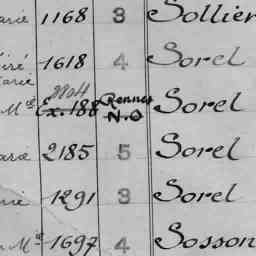 arié 1168 3 Sollier
1618 4 Sorel
Mᵉ Ex. 188 2204 Rennes N.O Sorel
arié 2185 5 Sorel
1291 3 Sorel
Mᵉ 1697 4 Sosson